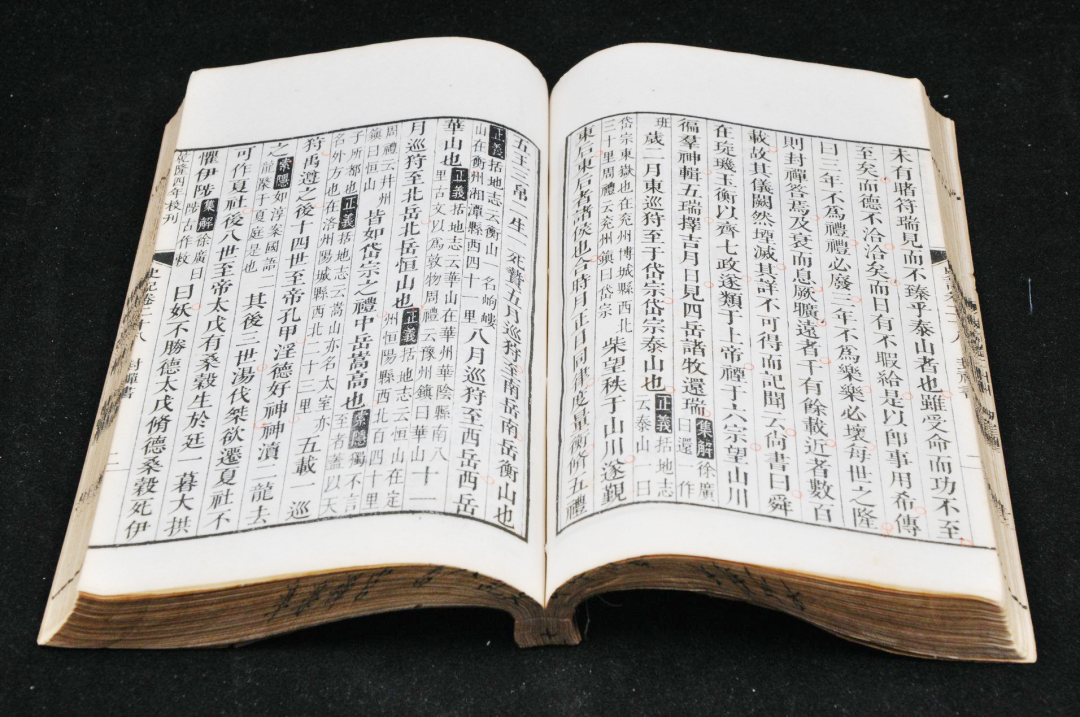 未有睹符瑞見而不臻乎泰山者也雖受命而功不至
至矣而德不洽洽矣而日有不暇給是以卽事用希傳
曰三年不為禮禮必廢三年不為樂樂必壞每世之隆
則封禪答焉及衰而息厥曠遠者千有餘載近者數百
載故其儀闕然堙滅其詳不可得而記聞云尚書曰舜
在琁璣玉衡以齊七政遂類于上帝禋于六宗望山川
徧羣神輯五瑞擇吉月日見四岳諸牧還瑞集解徐廣曰還一作
班歲二月東巡狩至于岱宗岱宗泰山也正義括地志云泰山一曰
岱宗東嶽也在兗州博城縣西北三十里周禮云兗州鎮曰岱宗柴望秩于山川遂覲
東后東后者諸侯也合時月正日同律度量衡修五禮
五玉三帛二生一死贄五月巡狩至南岳南岳衡山也
正義括地志云衡山一名岣嶁山在衡州湘潭縣西四十一里八月巡狩至西岳西岳
華山也正義括地志云華山在華州華陰縣南八里古文以為敦物周禮云豫州鎮曰華山十一
月巡狩至北岳北岳恒山也正義括地志云恒山在定州恒陽縣西北百四十里
周禮云并州鎮曰恒山皆如岱宗之禮中岳嵩高也索隱獨不言至者蓋以天
子所都也正義括地志云嵩山亦名太室亦名外方也在洛州陽城縣西北二十三里五載一巡
狩禹遵之後十四世至帝孔甲淫德好神神瀆二龍去
之索隱如淳案國語二龍漦于夏庭是也其後三世湯伐桀欲遷夏社不
可作夏社後八世至帝太戊有桑穀生於廷一暮大拱
懼伊陟集解徐廣曰陟古作敕曰妖不勝德太戊脩德桑穀死伊
乾隆四年校刊
史記卷二十八
封禪書
二